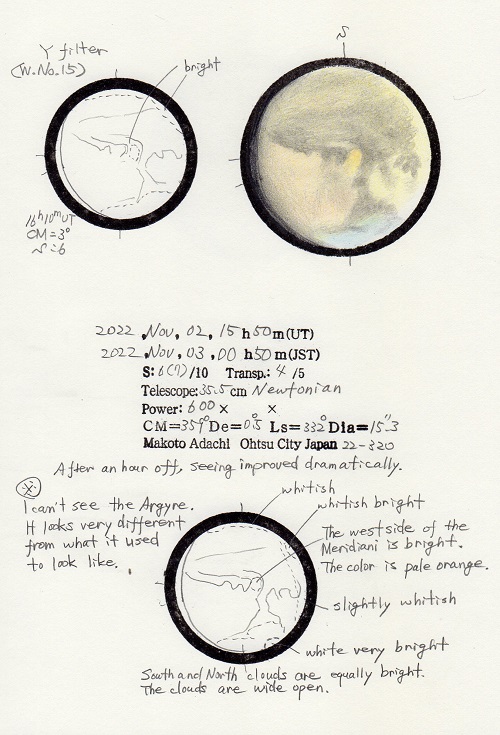 Y filter
(W.No.15)
bright
S
16h10mUT
CM=3°
S=6
2022, Nov, 02, 15h50m(UT)
2022, Nov, 03, 00h50m(JST)
S: 6(7)/10 Transp.: 4/5
Telescope: 35.5cm Newtonian
Power: 600× ×
CM=359° De=0.5° Ls=332° Dia=15".3
Makoto Adachi Ohtsu City Japan 22-320
After an hour off, seeing improved dramatically.
※
I can't see the Argyre.
It looks very different
from what it used
to look like.
whitish
whitish bright
The westside of the
Meridiani is bright.
The color is pale orange.
slightly whitish
white very bright
South and North clouds are equally bright.
The clouds are wide open.